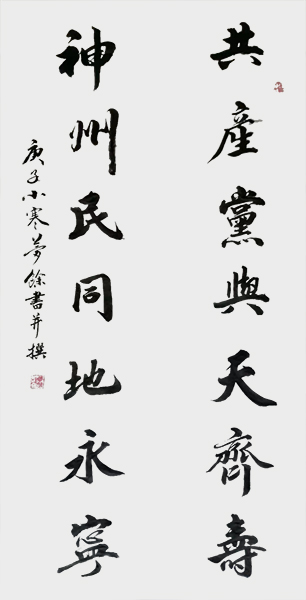 共產黨與天齊壽
神州民同地永寧
庚子小寒夢餘書并撰